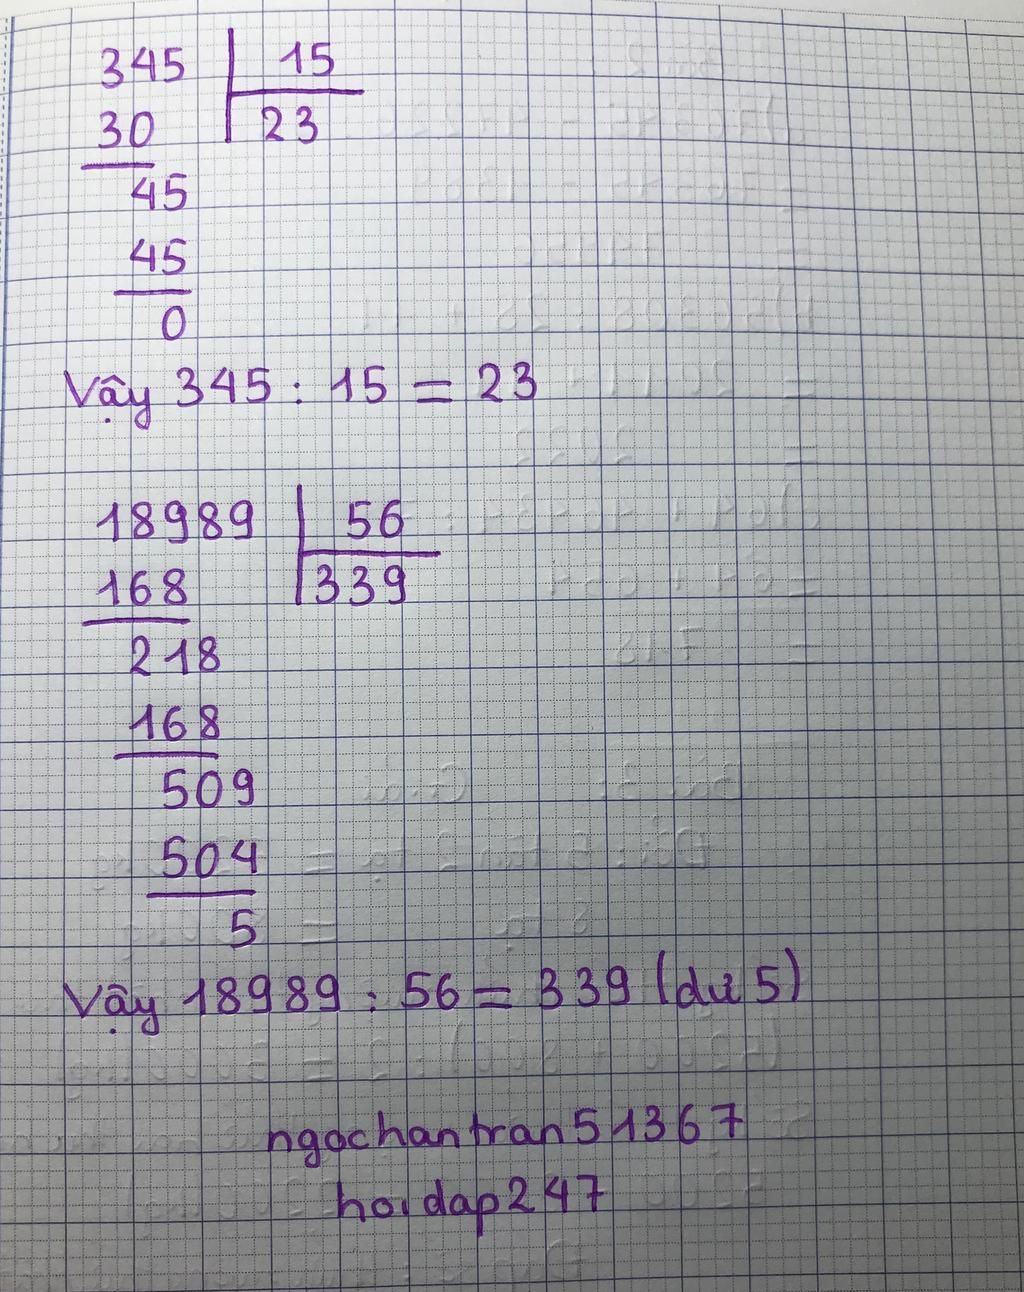 345 15
30 23
45
45
0
Vậy 345 : 15 = 23
18989 56
168 339
218
168
509
504
5
Vậy 18989 : 56 = 339 (dư 5)
ngochantran51367
hoidap247